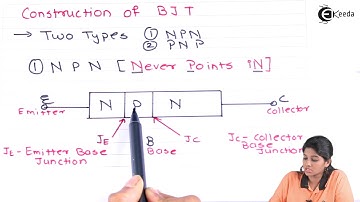 Construction of BJT
Ekeeda
→ Two Types ① NPN
② PNP
① N P N [Never Points iN]
E C
N P N
Emitter Collector
JE B JC
Base
JE - Emitter Base Junction
JC - Collector Base Junction